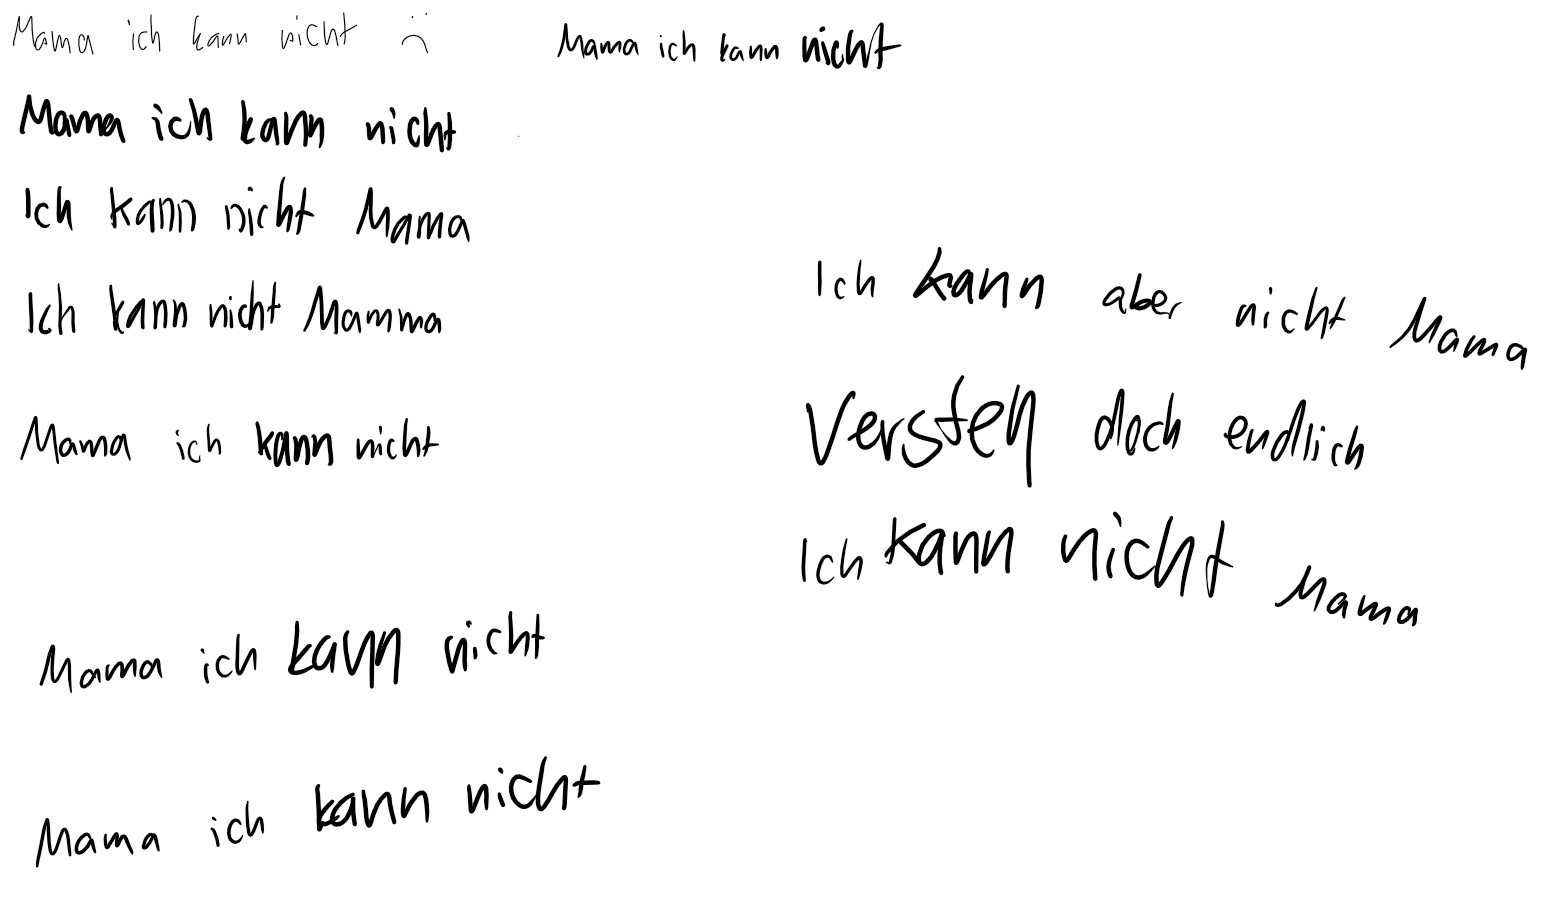 Mama ich kann nicht :(
Mama ich kann nicht
Mama ich kann nicht
Ich kann nicht Mama
Ich kann nicht Mamma
Mama ich kann nicht
Mama ich kann nicht
Mama ich kann nicht
Ich kann aber nicht Mama
Versteh doch endlich
Ich kann nicht Mama